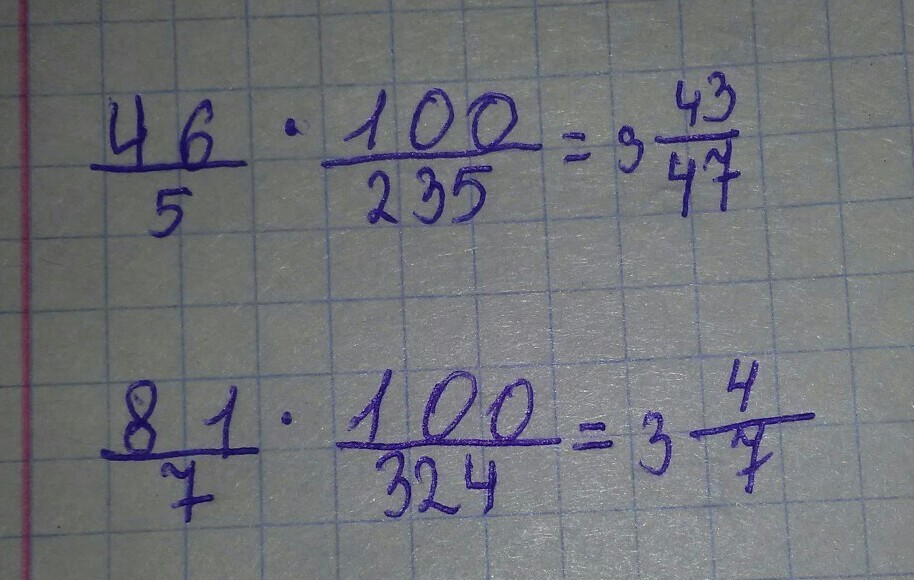 46/5 · 100/235 = 3 43/47
81/7 · 100/324 = 3 4/7